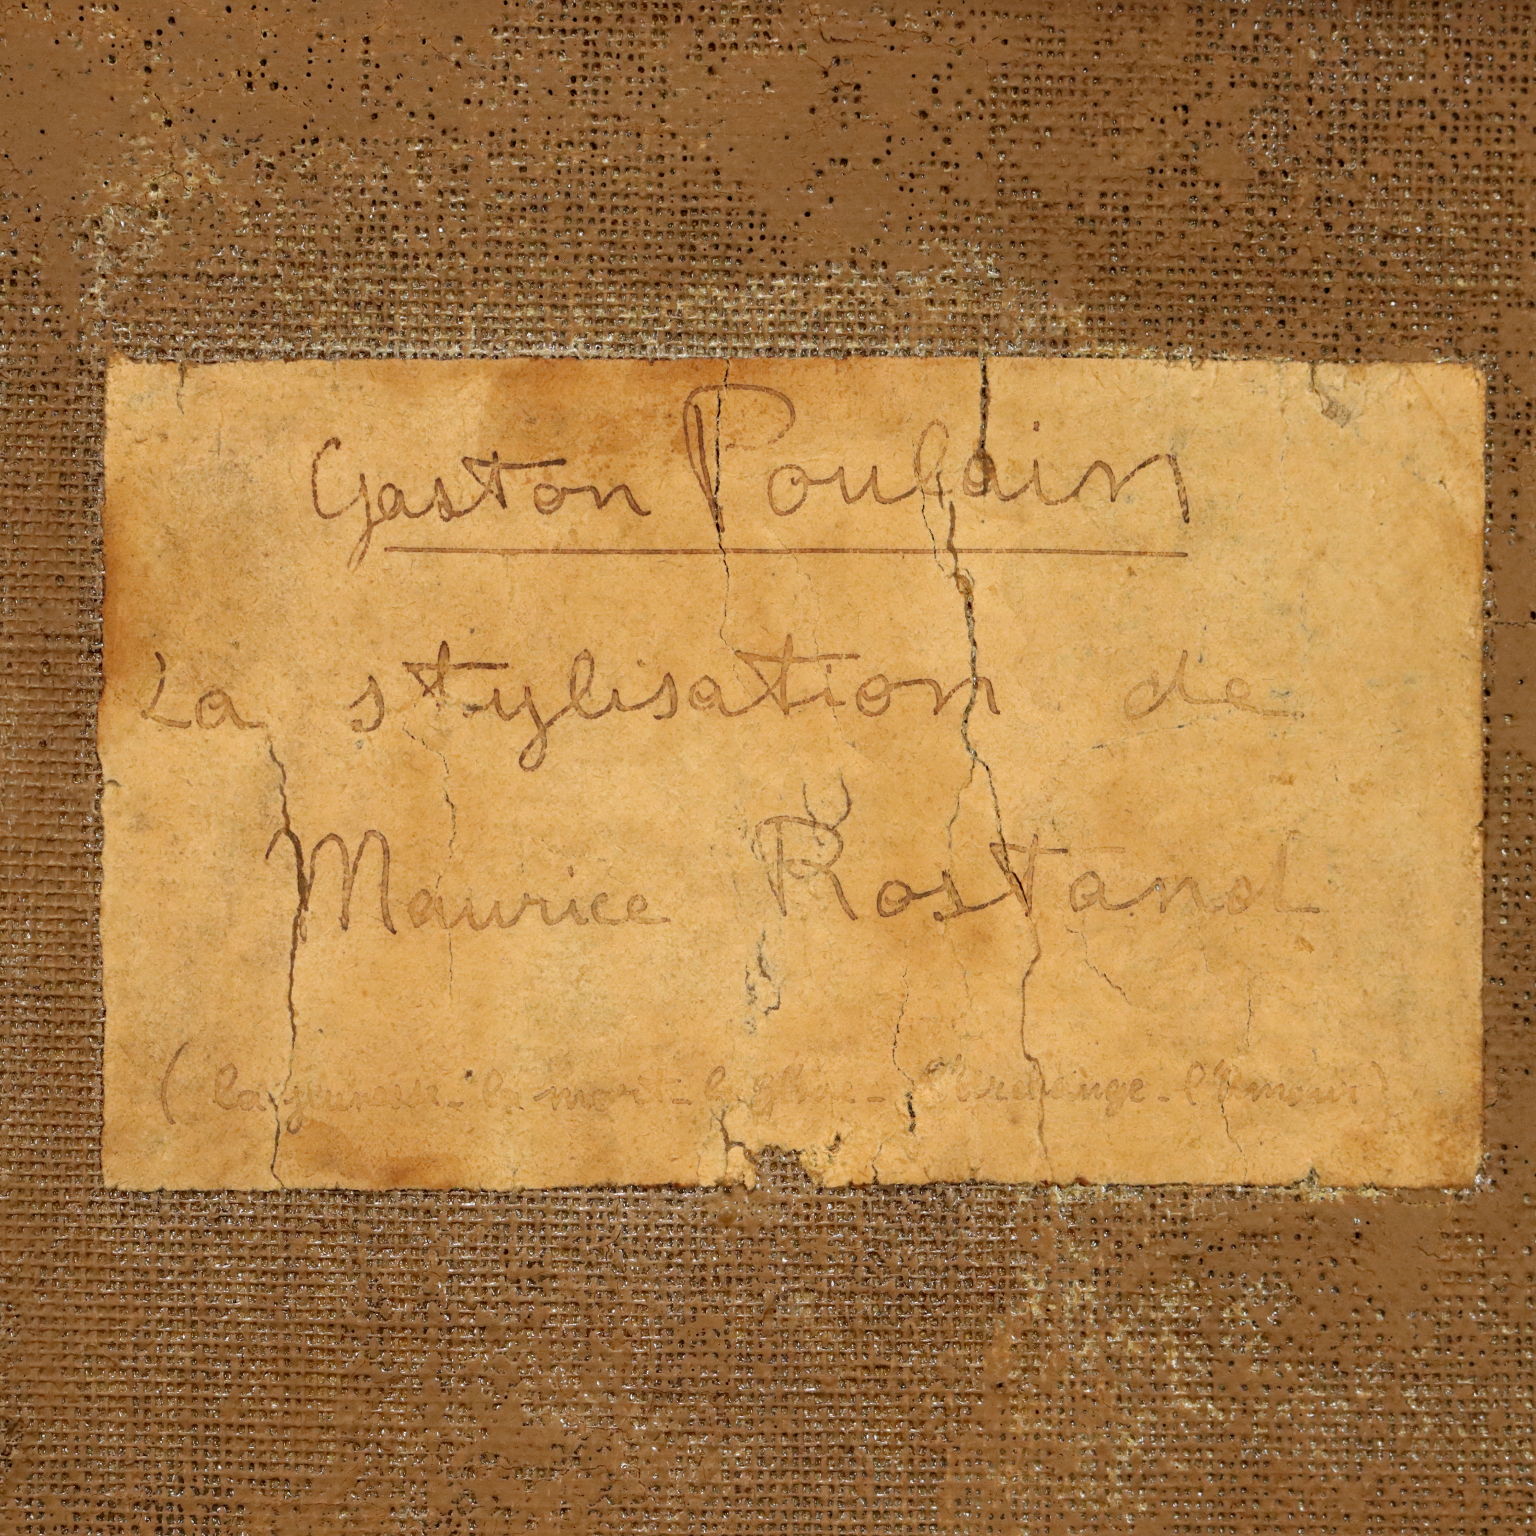 Gaston Poulain
La stylisation de
Maurice Rostand
( la jeunesse - la mort - la gloire - l'Archange - l'Amour )